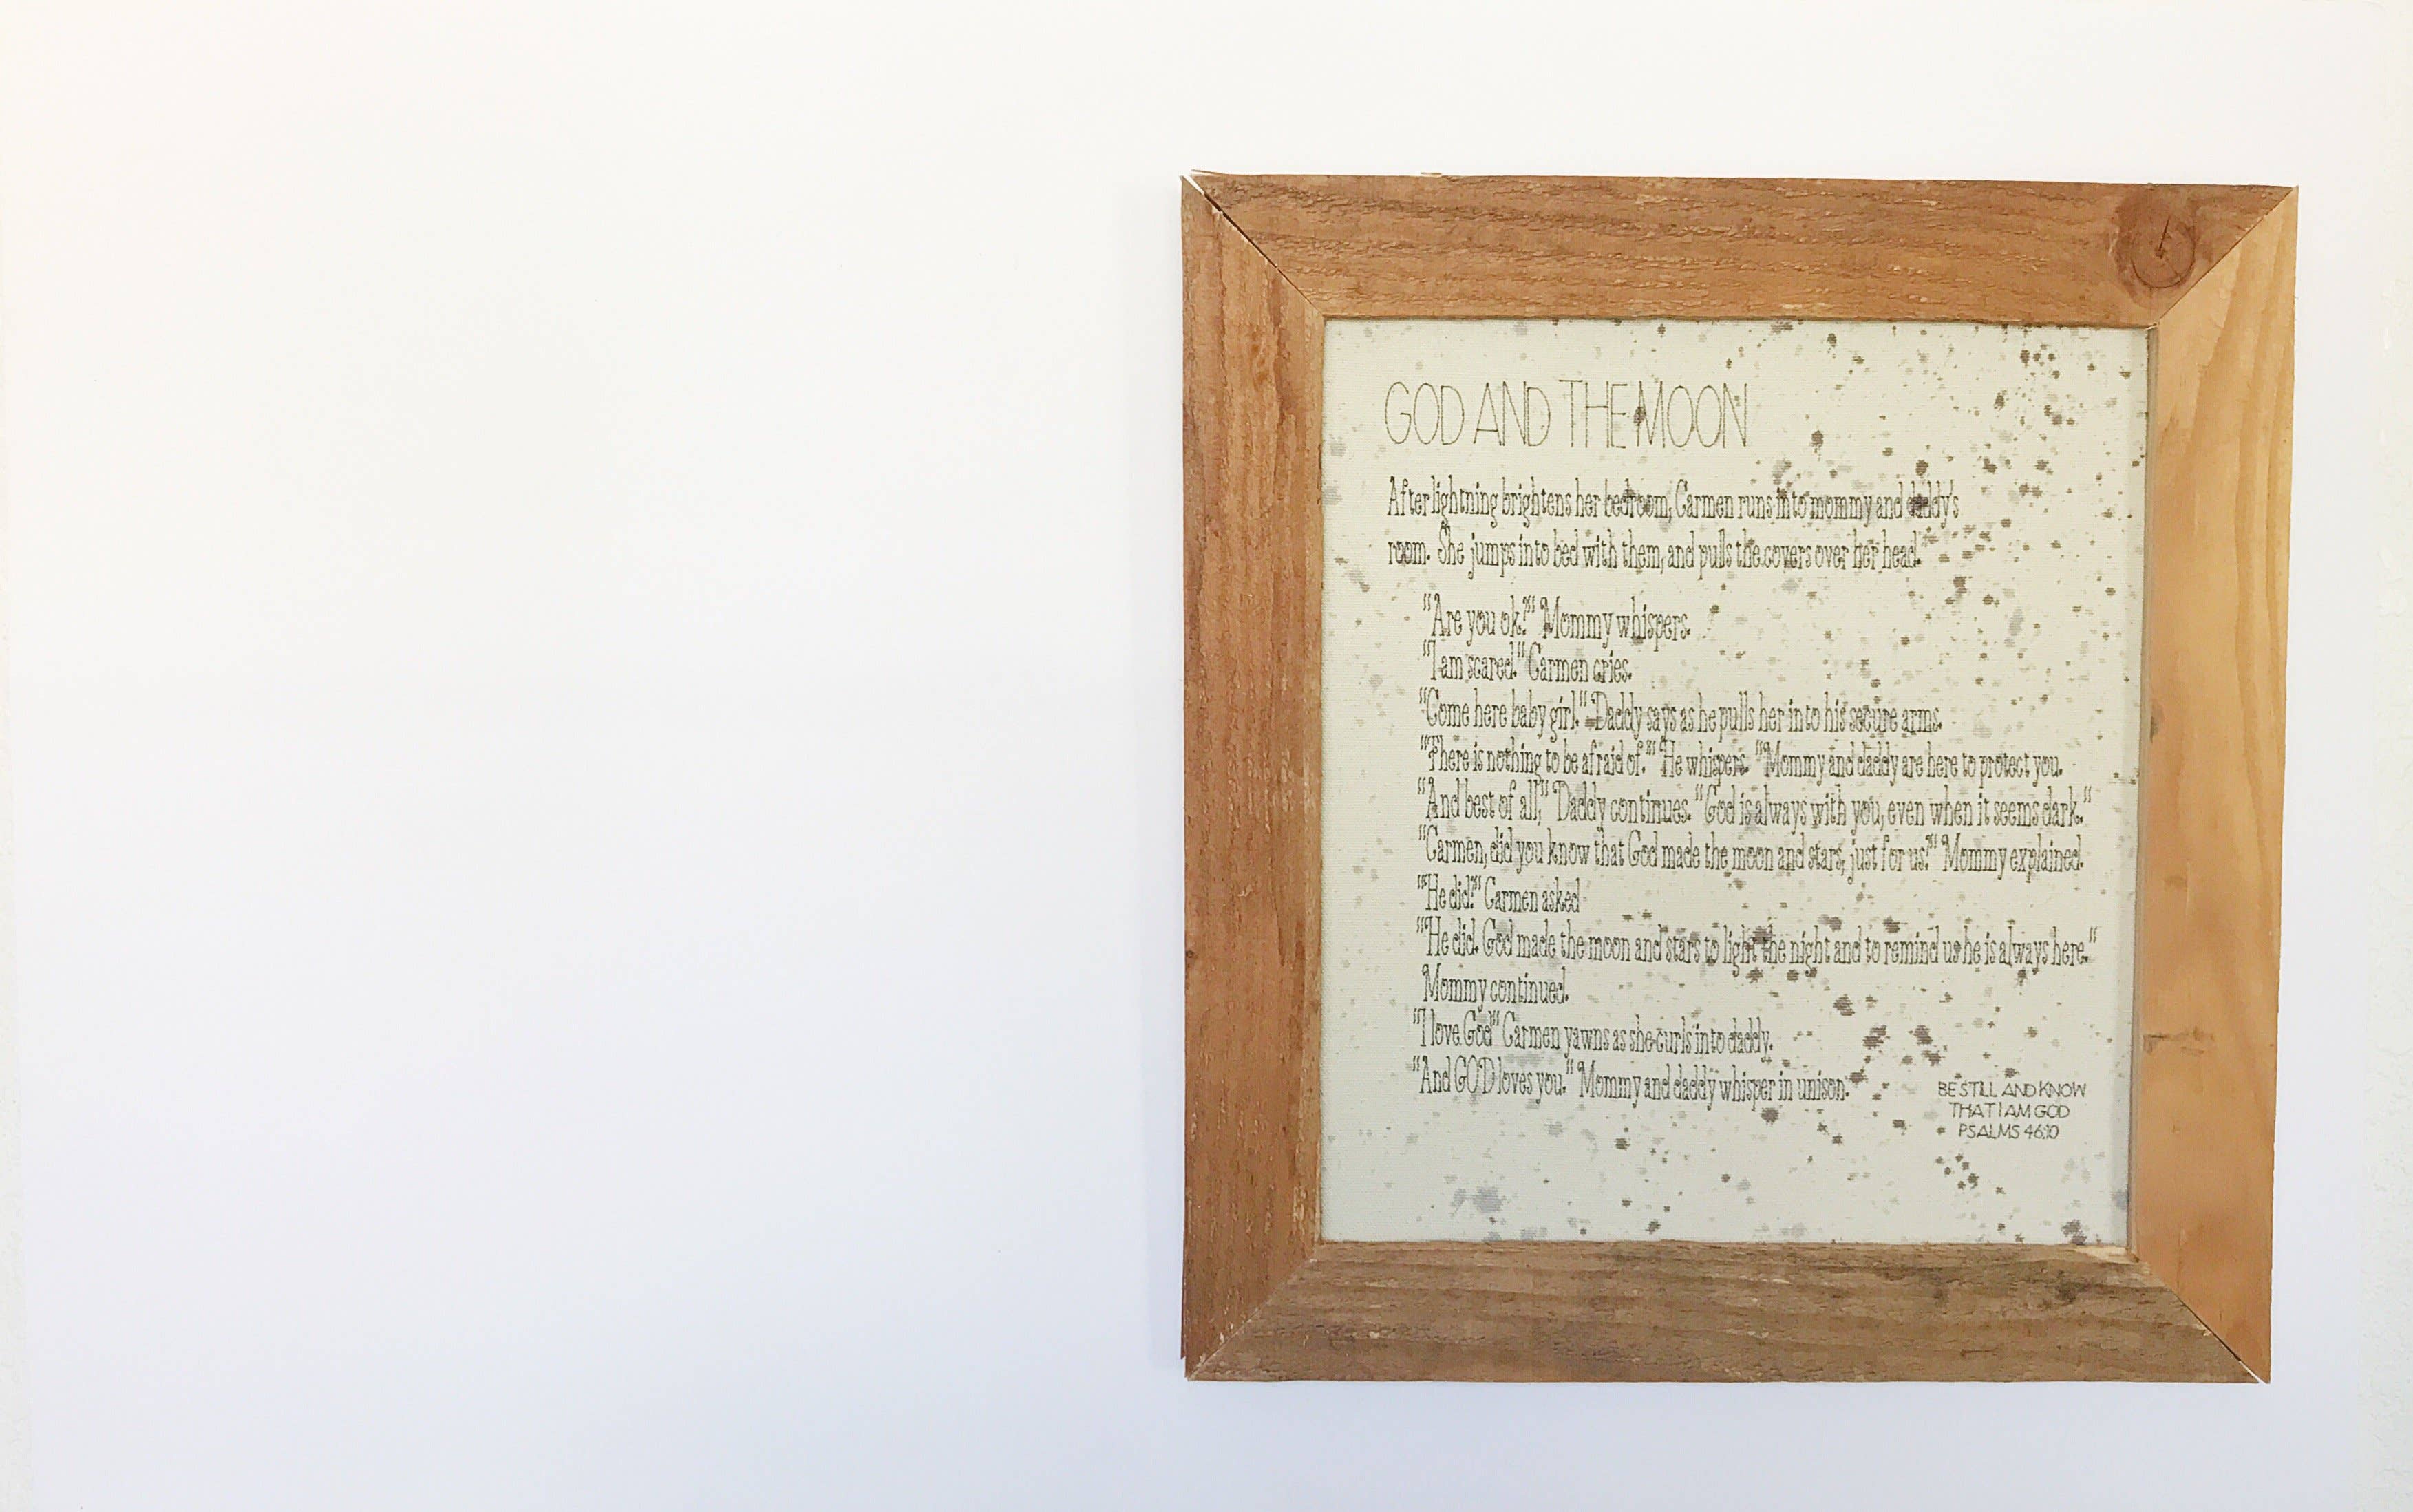 GOD AND THE MOON
After lightning brightens her bedroom, Carmen runs into mommy and daddy's
room. She jumps into bed with them, and pulls the covers over her head.
"Are you ok?" Mommy whispers.
"I am scared." Carmen cries.
"Come here baby girl." Daddy says as he pulls her into his secure arms.
"There is nothing to be afraid of." He whispers. "Mommy and daddy are here to protect you.
"And best of all," Daddy continues. "God is always with you, even when it seems dark."
"Carmen, did you know that God made the moon and stars, just for us?" Mommy explained.
"He did?" Carmen asked
"He did. God made the moon and stars to light the night and to remind us he is always here."
Mommy continued.
"I love God" Carmen yawns as she curls into daddy.
"And GOD loves you." Mommy and daddy whisper in unison.
BE STILL AND KNOW
THAT I AM GOD
PSALMS 46:10